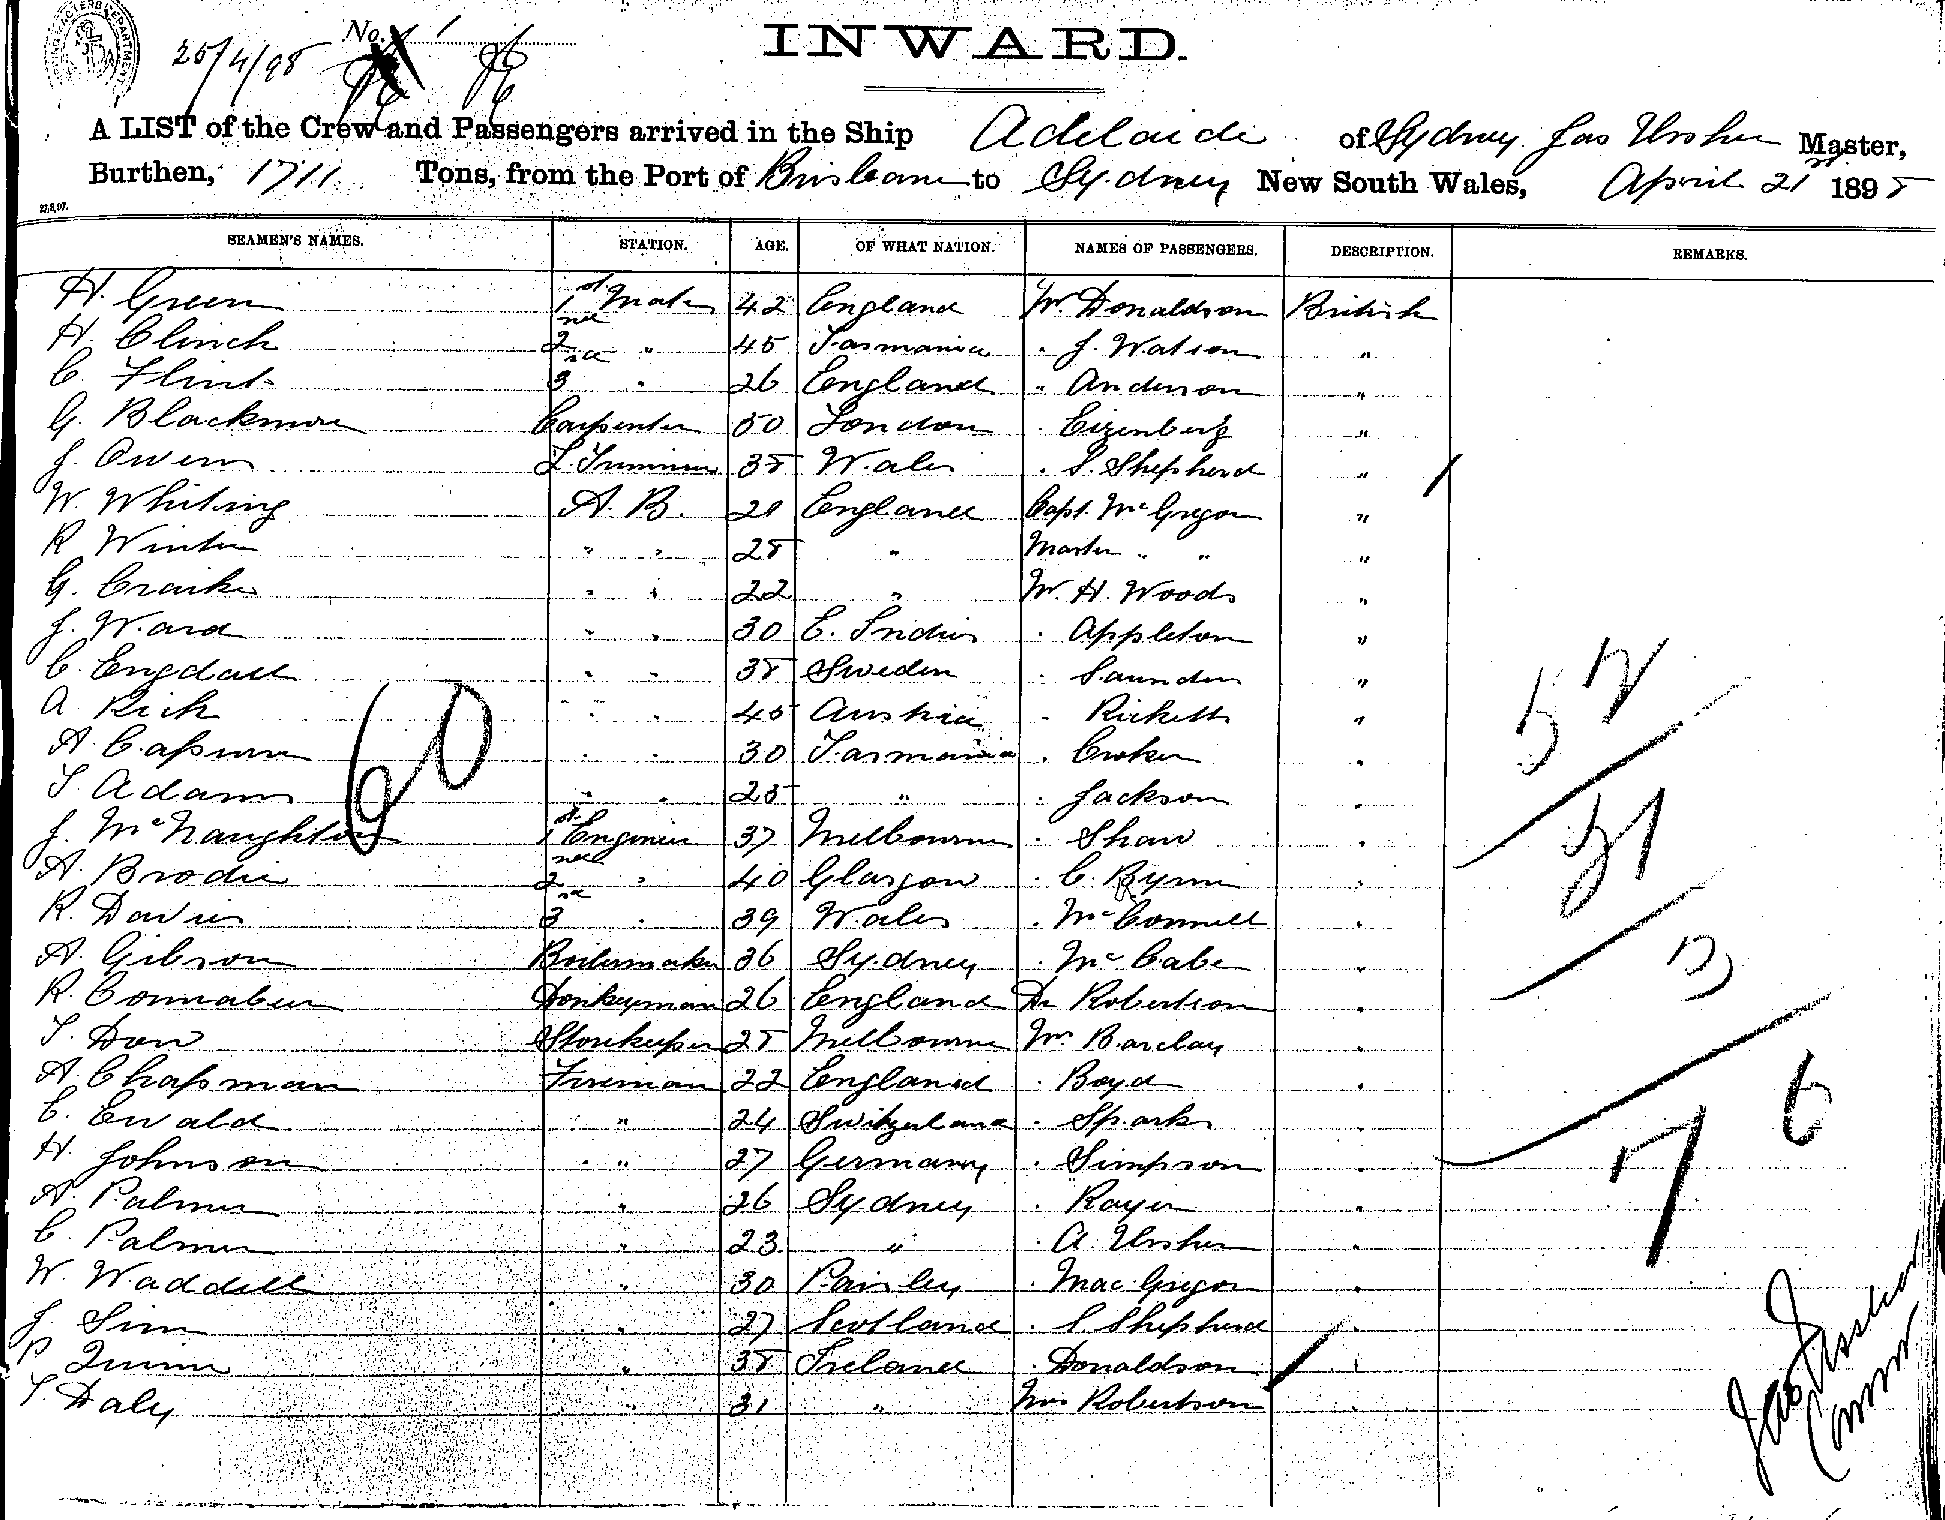 25/4/98 No. 1
INWARD.
A LIST of the Crew and Passengers arrived in the Ship Adelaide of Sydney Jas Ussher Master,
Burthen, 1711 Tons, from the Port of Brisbane to Sydney New South Wales, April 21st 1898
27.8.97.
SEAMEN'S NAMES. STATION. AGE. OF WHAT NATION. NAMES OF PASSENGERS. DESCRIPTION. REMARKS.
H. Green 1st Mate 42 England Mr Donaldson British
H. Clinch 2nd " 45 Tasmania " J. Watson "
C. Flint 3rd " 26 England " Anderson "
G. Blackmore Carpenter 50 London " Eizenberg "
J. Owens L. Trimmer 38 Wales " S. Shepherd "
W. Whiting A.B. 21 England Capt. McGregor "
R Winter " " 28 " Master " " "
G. Craike " " 22 " Mr H. Woods "
J. Ward " " 30 E. Indies " Appleton "
C. Engdall " " 38 Sweden " Saunders "
A. Rich " " 45 Austria " Ricketts "
A. Capurn " " 30 Tasmania " Croker "
T. Adams " " 25 " " Jackson "
J. McNaughton 1st Engineer 37 Melbourne " Shaw "
A. Brodie 2nd " 40 Glasgow " C. Byrne "
R. Davies 3rd " 39 Wales " McConnell "
A. Gibson Boilermaker 36 Sydney " McCabe "
R. Connabeer Donkeyman 26 England Dr Robertson "
T. Dow Storekeeper 28 Melbourne Mr Barclay "
A. Chapman Fireman 22 England " Boyd "
C. Ewald " " 24 Switzerland " Sparks "
H. Johnson " " 27 Germany " Simpson "
A. Palmer " 26 Sydney " Rayer "
C. Palmer " 23 " " A. Ussher "
W. Waddell " 30 Paisley " MacGregor "
J. Sim " 27 Scotland " S Shepherd "
P Quinn " 38 Ireland " Donaldson "
T. Daly " 31 " Mrs Robertson "
60
52
31
3
76
Jas Ussher